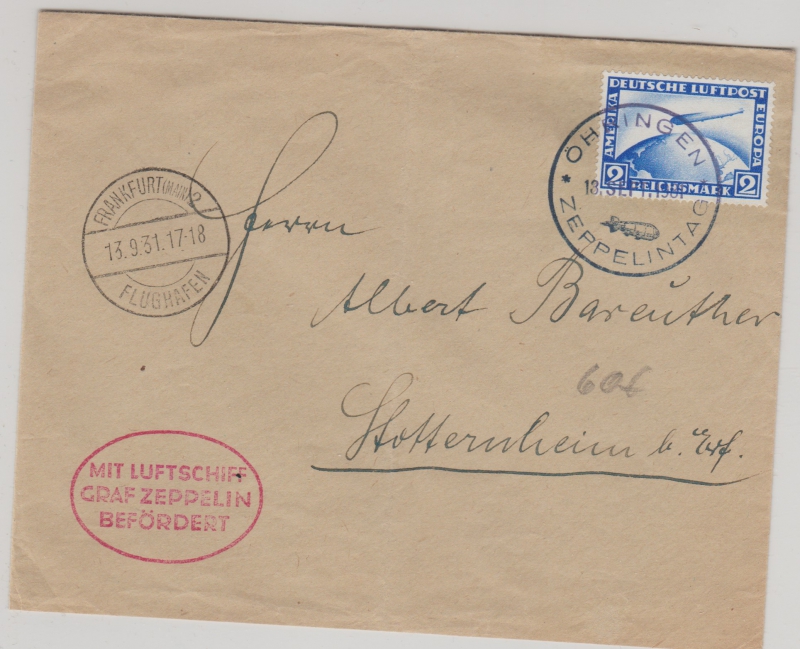 DEUTSCHE LUFTPOST
AMERIKA
EUROPA
2 REICHSMARK 2
* ÖHRINGEN *
13. SEPT. 1931
ZEPPELINTAG
FRANKFURT (MAIN) 2
13.9.31.17-18
FLUGHAFEN
Herrn
Albert Bareuther
60€
Stotternheim b. Erf.
MIT LUFTSCHIFF
GRAF ZEPPELIN
BEFÖRDERT